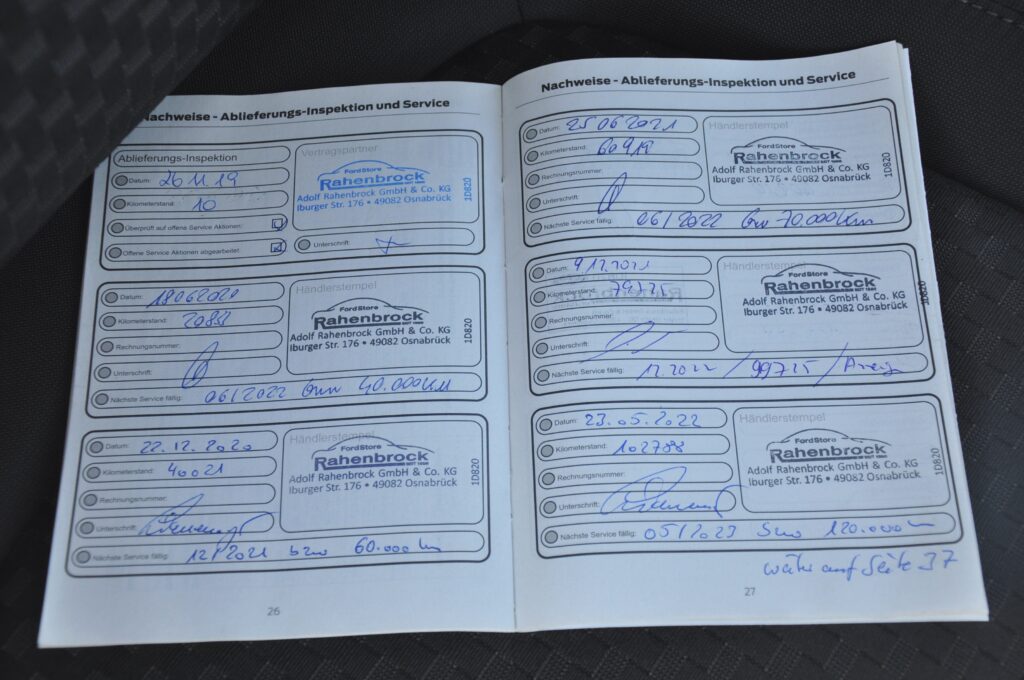 Nachweise - Ablieferungs-Inspektion und Service
Ablieferungs-Inspektion
Datum: 26 11. 19
Kilometerstand: 10
Überprüft auf offene Service Aktionen:
Offene Service Aktionen abgearbeitet:
Vertragspartner
FordStore
Rahenbrock
Adolf Rahenbrock GmbH & Co. KG
Iburger Str. 176 • 49082 Osnabrück
1D820
Unterschrift:
Datum: 18062020
Kilometerstand:
Rechnungsnummer:
Unterschrift:
Händlerstempel
FordStore
Rahenbrock
Adolf Rahenbrock GmbH & Co. KG
Iburger Str. 176 • 49082 Osnabrück
1D820
Nächste Service fällig: 06/2022 40.000KM
Datum: 22.12.2020
Kilometerstand: 40021
Rechnungsnummer:
Unterschrift:
Händlerstempel
FordStore
Rahenbrock
Adolf Rahenbrock GmbH & Co. KG
Iburger Str. 176 • 49082 Osnabrück
1D820
Nächste Service fällig: 12/2021 bzw 60.000 km
26
Nachweise - Ablieferungs-Inspektion und Service
Datum: 25062021
Kilometerstand: 60919
Rechnungsnummer:
Unterschrift:
Händlerstempel
FordStore
Rahenbrock
Adolf Rahenbrock GmbH & Co. KG
Iburger Str. 176 • 49082 Osnabrück
1D820
Nächste Service fällig: 06/2022 70.000km
Datum: 9.12.2021
Kilometerstand: 79725
Rechnungsnummer:
Unterschrift:
Händlerstempel
FordStore
Rahenbrock
Adolf Rahenbrock GmbH & Co. KG
Iburger Str. 176 • 49082 Osnabrück
1D820
Nächste Service fällig: 12.2022 / 99725 /
Datum: 23.05.2022
Kilometerstand: 102788
Rechnungsnummer:
Unterschrift:
Händlerstempel
FordStore
Rahenbrock
Adolf Rahenbrock GmbH & Co. KG
Iburger Str. 176 • 49082 Osnabrück
1D820
Nächste Service fällig: 05/2023 bzw 120.000km
auf Seite 37
27